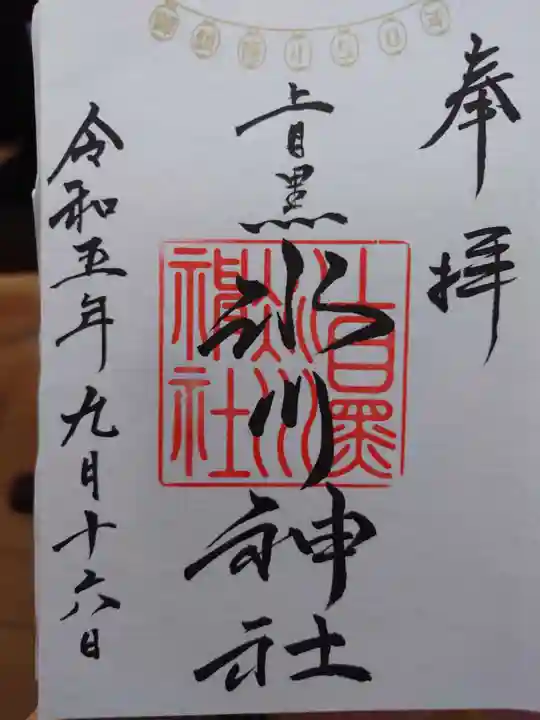 奉拝
上目黒
氷川神社
令和五年九月十六日
上目黒
氷川
神社